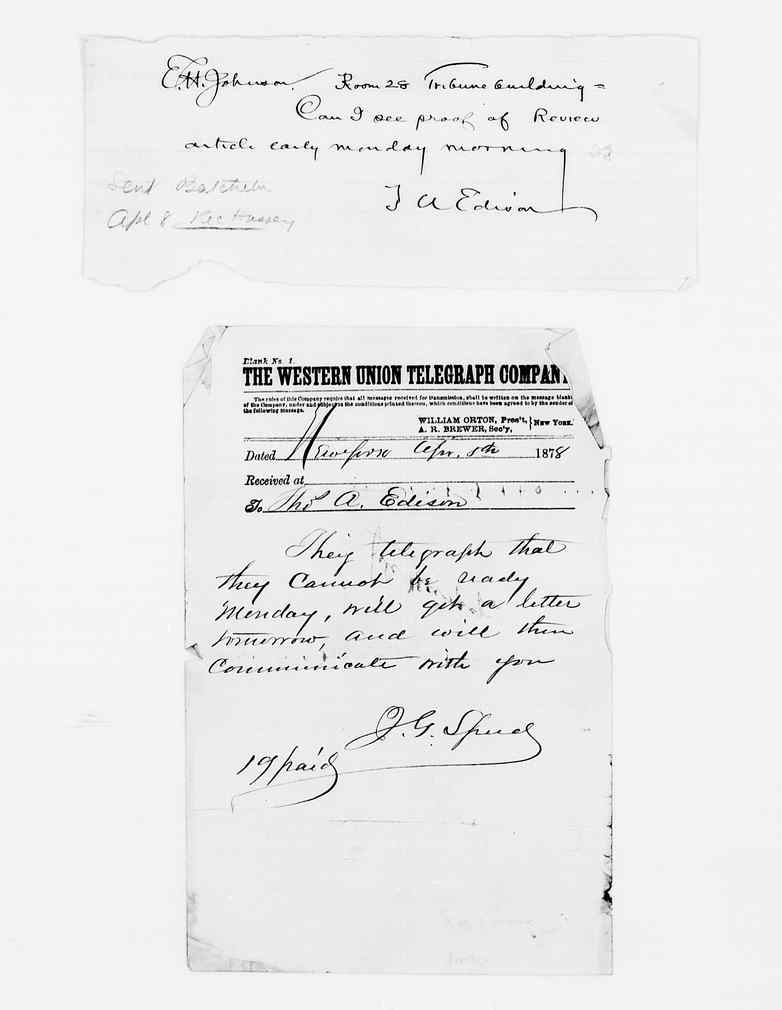 E. H. Johnson. Room 28 Tribune building =
Can I see proof of Review
article early monday morning
T A Edison
Sent
Apl 8 Rec
Blank No. 1.
THE WESTERN UNION TELEGRAPH COMPANY
The rules of this Company require that all messages received for transmission, shall be written on the message blanks
of the Company, under and subject to the conditions printed thereon, which conditions have been agreed to by the sender of
the following message.
WILLIAM ORTON, Pres't,
A. R. BREWER, Sec'y, } New York.
Dated Apr. 5th 1878
Received at
To Thos A. Edison
They telegraph that
they cannot be ready
Monday, will get a letter
tomorrow, and will then
communicate with you
J. G.
19 paid